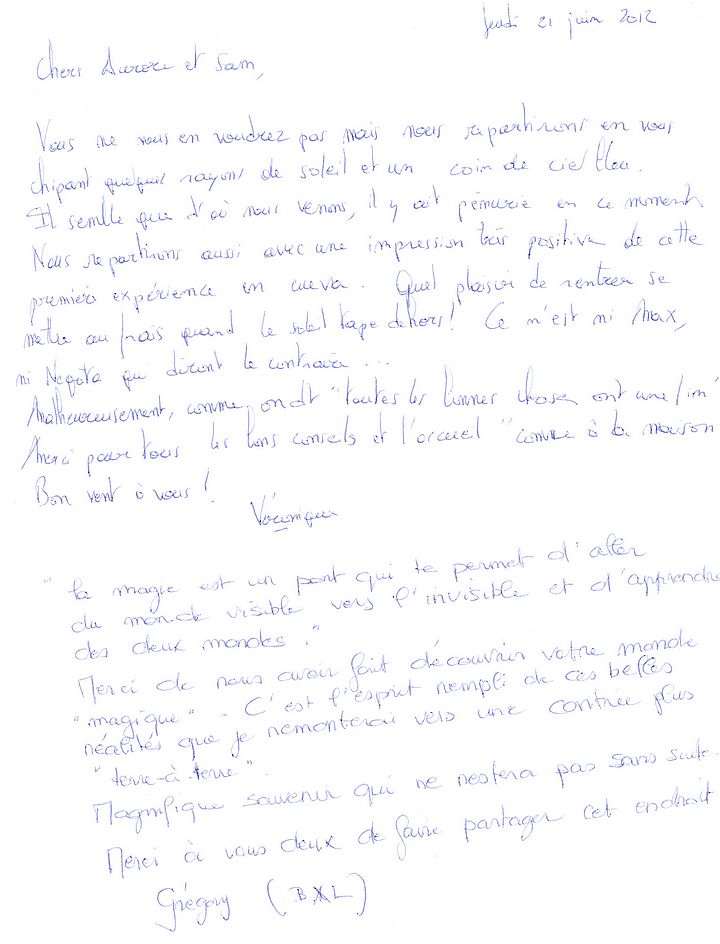 Jeudi 21 juin 2012
Chers Aurore et Sam,
Vous ne nous en voudrez pas mais nous repartirons en vous
chipant quelques rayons de soleil et un coin de ciel bleu.
Il semble que d'où nous venons, il y ait pénurie en ce moment.
Nous repartirons aussi avec une impression très positive de cette
première expérience en cueva. Quel plaisir de rentrer se
mettre au frais quand le soleil tape dehors! Ce n'est ni Max,
ni Negota qui diront le contraire...
Malheureusement, comme on dit "toutes les bonnes choses ont une fin"
Merci pour tous les bons conseils et l'accueil "comme à la maison
Bon vent à vous!
Véronique
"La magie est un pont qui te permet d'aller
du monde visible vers l'invisible et d'apprendre
des deux mondes."
Merci de nous avoir fait découvrir votre monde
"magique". C'est l'esprit rempli de ces belles
réalités que je remonterai vers une contrée plus
"terre-à-terre".
Magnifique souvenir qui ne restera pas sans suite.
Merci à vous deux de faire partager cet endroit
Grégory (BXL)